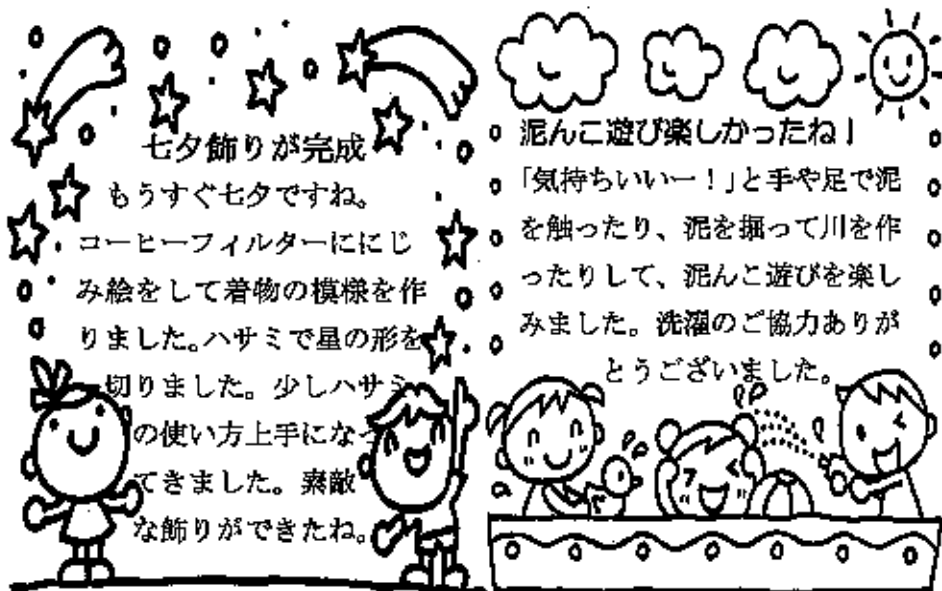 七夕飾りが完成
もうすぐ七夕ですね。
コーヒーフィルターににじ
み絵をして着物の模様を作
りました。ハサミで星の形を
切りました。少しハサミ
の使い方上手になっ
てきました。素敵
な飾りができたね。
泥んこ遊び楽しかったね！
「気持ちいいー！」と手や足で泥
を触ったり、泥を掘って川を作
ったりして、泥んこ遊びを楽し
みました。洗濯のご協力ありが
とうございました。